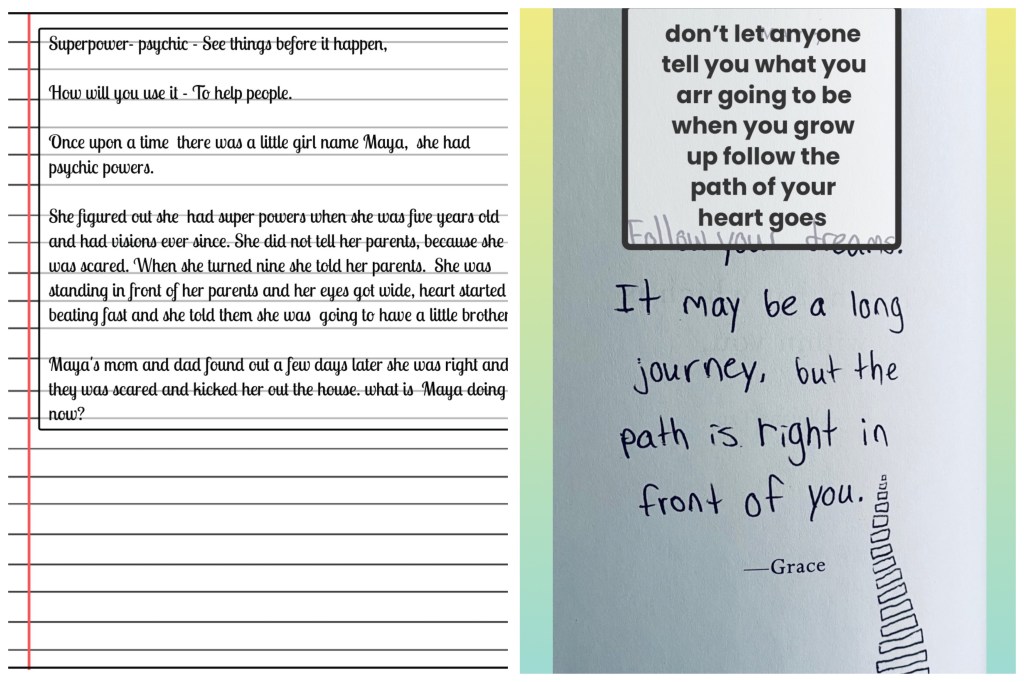 Superpower- psychic - See things before it happen,
How will you use it - To help people.
Once upon a time there was a little girl name Maya, she had
psychic powers.
She figured out she had super powers when she was five years old
and had visions ever since. She did not tell her parents, because she
was scared. When she turned nine she told her parents. She was
standing in front of her parents and her eyes got wide, heart started
beating fast and she told them she was going to have a little brother
Maya's mom and dad found out a few days later she was right and
they was scared and kicked her out the house. what is Maya doing
now?
don't let anyone
tell you what you
arr going to be
when you grow
up follow the
path of your
heart goes
Follow your dreams.
It may be a long
journey, but the
path is right in
front of you.
—Grace